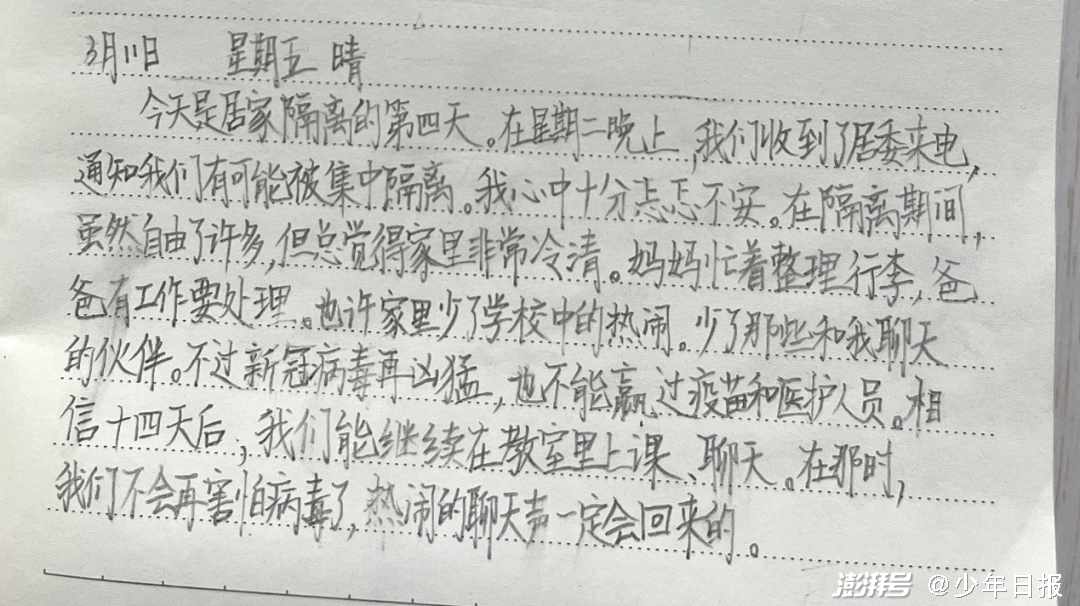 3月11日 星期五 晴
今天是居家隔离的第四天。在星期二晚上,我们收到了居委来电,
通知我们有可能被集中隔离。我心中十分忐忑不安。在隔离期间,
虽然自由了许多,但总觉得家里非常冷清。妈妈忙着整理行李,爸
爸有工作要处理。也许家里少了学校中的热闹。少了那些和我聊天
的伙伴。不过新冠病毒再凶猛,也不能赢过疫苗和医护人员。相
信十四天后,我们能继续在教室里上课、聊天。在那时,
我们不会再害怕病毒了,热闹的聊天声一定会回来的。
澎湃号 @少年日报